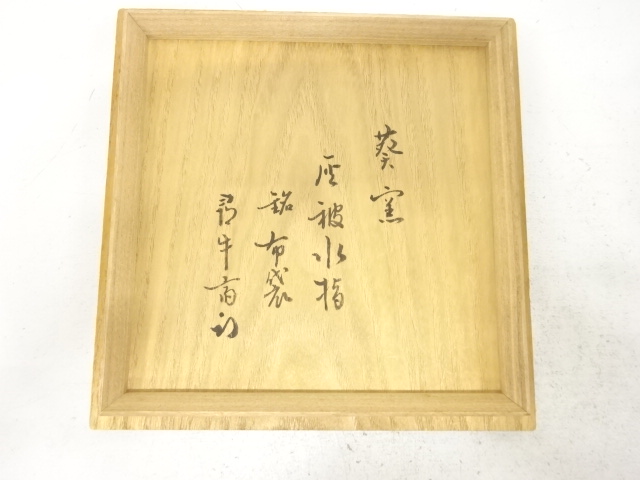 葵窯
灰被水指
銘布袋
尋牛斎